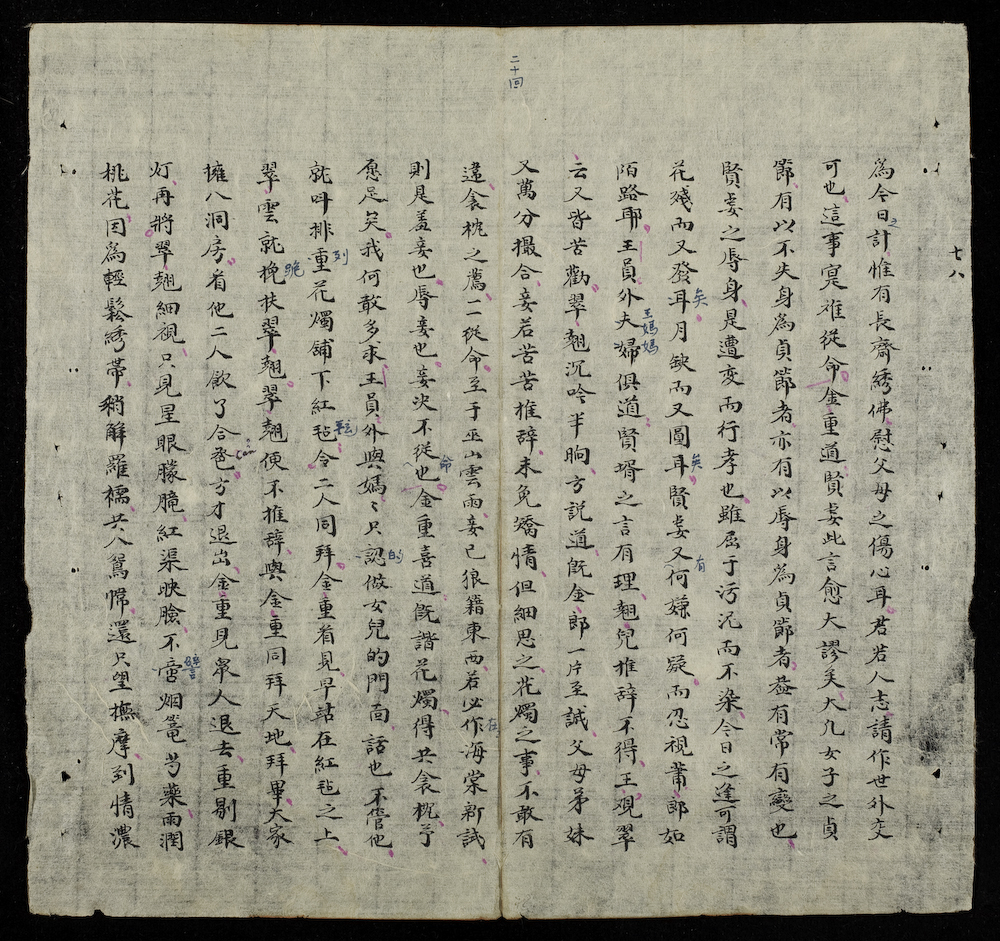 二十回
七八
為今日之計惟有長齋綉佛慰父母之傷心耳君若人志請作世外交
可也這事寔难從命金重道賢妾此言愈大謬矣大凡女子之貞
節有以不失身為貞節者亦有以辱身為貞節者盖有常有變也
賢妾之辱身是遭变而行孝也雖屈于污泥而不染今日之逢可謂
花殘而又發耳矣月缺而又圓耳矣賢妾又有何嫌何疑而忍視蕭郎如
陌路耶王員外夫婦王媽媽俱道賢壻之言有理翹兒推辞不得王观翠
云又皆苦勸翠翹沉吟半晌方説道既金郎一片至誠父母弟妹
又萬分撮合妾若苦苦推辞未免矯情但細思之花燭之事不敢有
違衾枕之薦一一從命至于巫山雲雨妾已狼籍東西若必在作海棠新試
則是羞妾也辱妾也妾决不從命也金重喜道既諧花燭得共衾枕予
愿足矣我何敢多求王員外與媽〻只認的做女兒的門面話也不管他
就呌排列重花燭舖下紅毡氈令二人同拜金重看見早站在紅毡之上
翠雲就跪挽扶翠翹翠翹便不推辞與金重同拜天地拜畢大家
擁入洞房看他二人飲了合卺方才退出金重見衆人退去重剔銀
灯再將翠翹細視只見星眼朦朧紅渠映臉不啻譬烟篭芍藥雨潤
桃花因為輕鬆綉帶稍解羅襦共入鴛幃還只望撫摩到情濃